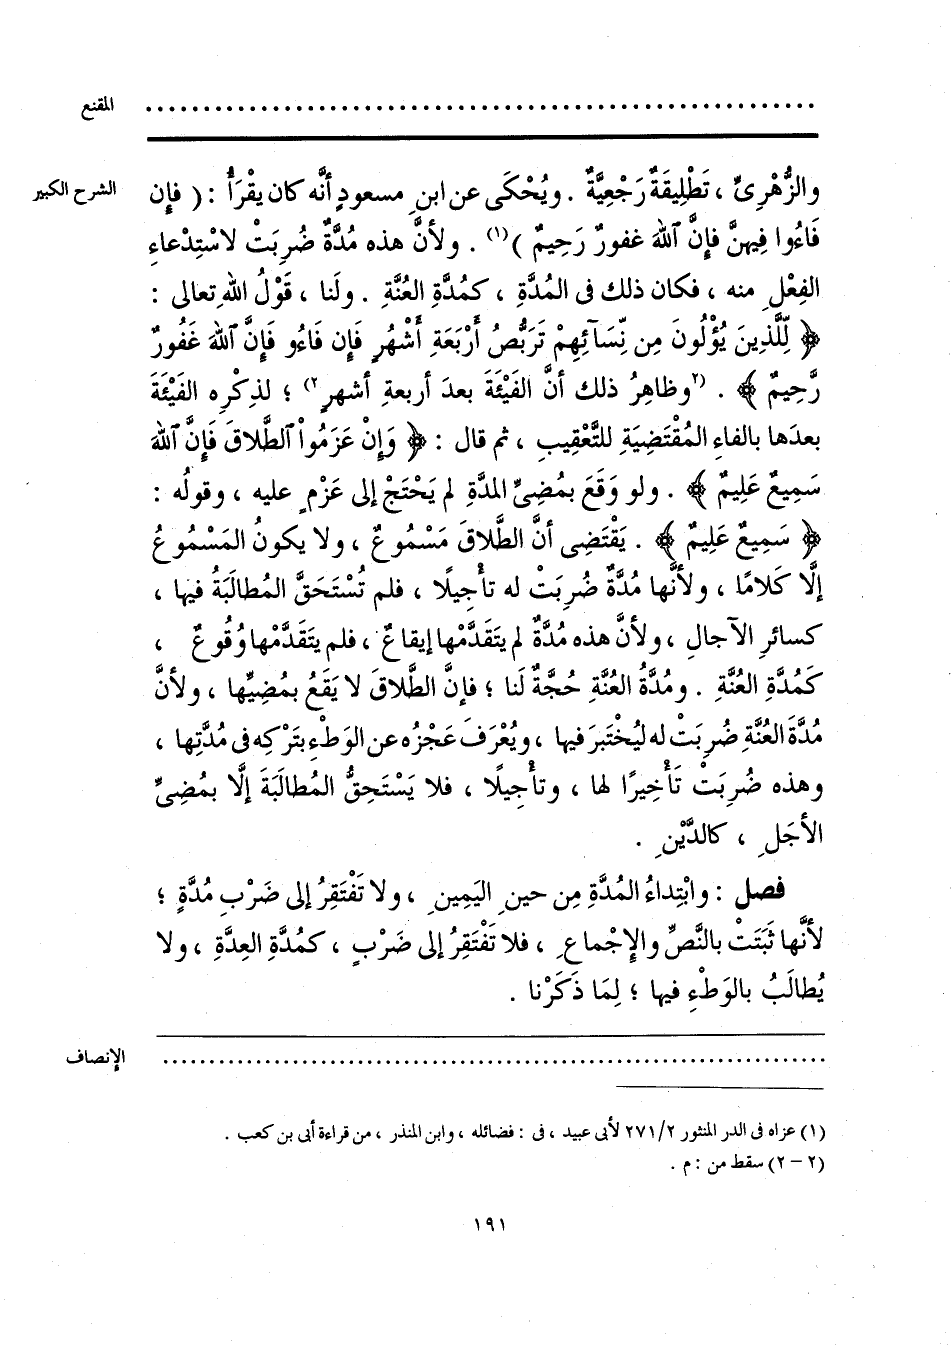 المقنع ................................................................
الشرح الكبير
والزُّهْرِىِّ ، تَطْلِيقَةٌ رَجْعِيَّةٌ . ويُحْكَى عن ابنِ مسعودٍ أنَّه كان يقْرَأُ : ( فإن
فَاءُوا فِيهنَّ فإِنَّ اللهَ غفورٌ رَحِيمٌ )(١) . ولأنَّ هذه مُدَّةٌ ضُرِبَتْ لاسْتِدْعاءِ
الفِعْلِ منه ، فكان ذلك فى المُدَّةِ ، كمُدَّةِ العُنَّةِ . ولَنا ، قَوْلُ اللهِ تعالى :
﴿ لِّلَّذِينَ يُؤْلُونَ مِن نِّسَآئِهِمْ تَرَبُّصُ أَرْبَعَةِ أَشْهُرٍ فَإِن فَاءُو فَإِنَّ اللهَ غَفُورٌ
رَّحِيمٌ ﴾ . (٢وظاهِرُ ذلك أنَّ الفَيْئَةَ بعدَ أربعةِ أشهرٍ٢) ؛ لذِكْرِه الفَيْئَةَ
بعدَها بالفاءِ المُقْتَضِيَةِ للتَّعْقِيبِ ، ثم قال : ﴿ وَإِنْ عَزَمُواْ ٱلطَّلاقَ فَإِنَّ ٱللهَ
سَمِيعٌ عَلِيمٌ ﴾ . ولو وَقَعَ بمُضِىِّ المدَّةِ لم يَحْتَجْ إلى عَزْمٍ عليه ، وقولُه :
﴿ سَمِيعٌ عَلِيمٌ ﴾ . يَقْتَضِى أنَّ الطَّلاقَ مَسْمُوعٌ ، ولا يكونُ المَسْمُوعُ
إلَّا كَلامًا ، ولأنَّها مُدَّةٌ ضُرِبَتْ له تأْجِيلًا ، فلم تُسْتَحَقَّ المُطالَبَةُ فيها ،
كسائرِ الآجالِ ، ولأنَّ هذه مُدَّةٌ لم يَتَقَدَّمْها إيقاعٌ ، فلم يتَقَدَّمْها وُقُوعٌ ،
كَمُدَّةِ العُنَّةِ . ومُدَّةُ العُنَّةِ حُجَّةٌ لَنا ؛ فإنَّ الطَّلاقَ لا يَقَعُ بمُضِيِّها ، ولأنَّ
مُدَّةَ العُنَّةِ ضُرِبَتْ له ليُخْتَبرَ فيها ، ويُعْرَفَ عَجْزُه عن الوَطْءِ بتَرْكِه فى مُدَّتِها ،
وهذه ضُرِبَتْ تَأْخِيرًا لها ، وتأْجِيلًا ، فلا يَسْتَحِقُّ المُطالَبَةَ إلَّا بمُضِىِّ
الأجَلِ ، كالدَّيْنِ .
فصل : وابْتِداءُ المُدَّةِ مِن حينِ اليَمِينِ ، ولا تَفْتَقِرُ إلى ضَرْبِ مُدَّةٍ ؛
لأنَّها ثَبَتَتْ بالنَّصِّ والإِجْماعِ ، فلا تَفْتَقِرُ إلى ضَرْبٍ ، كمُدَّةِ العِدَّةِ ، ولا
يُطالَبُ بالوَطْءِ فيها ؛ لِمَا ذَكَرْنا .
الإنصاف ................................................................
(١) عزاه فى الدر المنثور ٢٧١/٢ لأبى عبيد ، فى : فضائله ، وابن المنذر ، من قراءة أبى بن كعب .
(٢ – ٢) سقط من : م .
١٩١